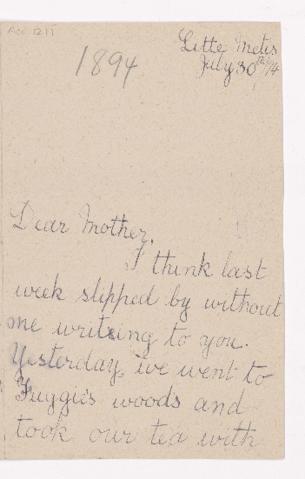 Acc 1211
1894
Litte Metis
July 30th/94
Dear Mother,
I think last
week slipped by without
me writeing to you.
Yesterday we went to
Fuggie's woods and
took our tea with